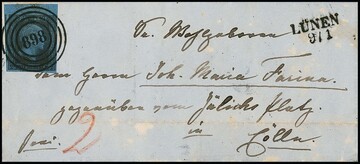 898
LÜNEN
9/1
Sr. Wohlgeboren
dem Herrn Joh. Maria Farina
gegenüber vom Jülichs Platz
in
Cölln.
2